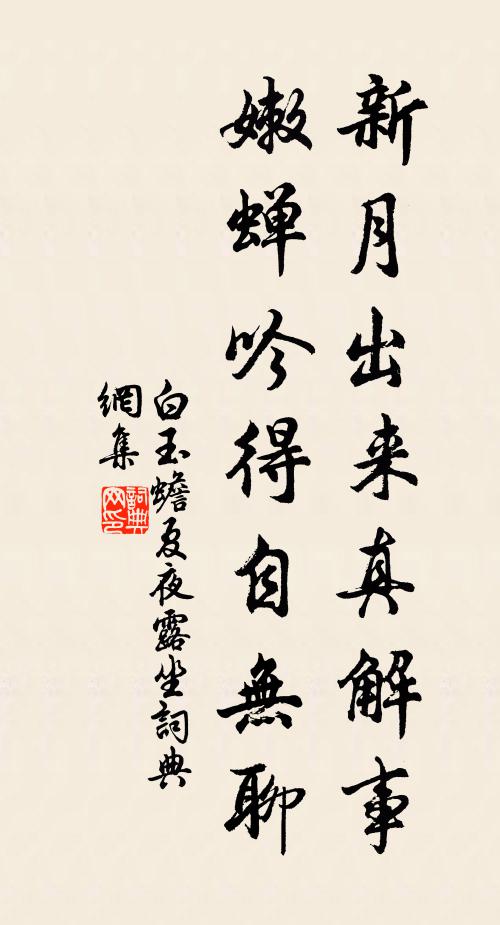 新月出来真解事
嫩蝉吟得自無聊
白玉蟾夏夜露坐詞典
網集
詞典
网印